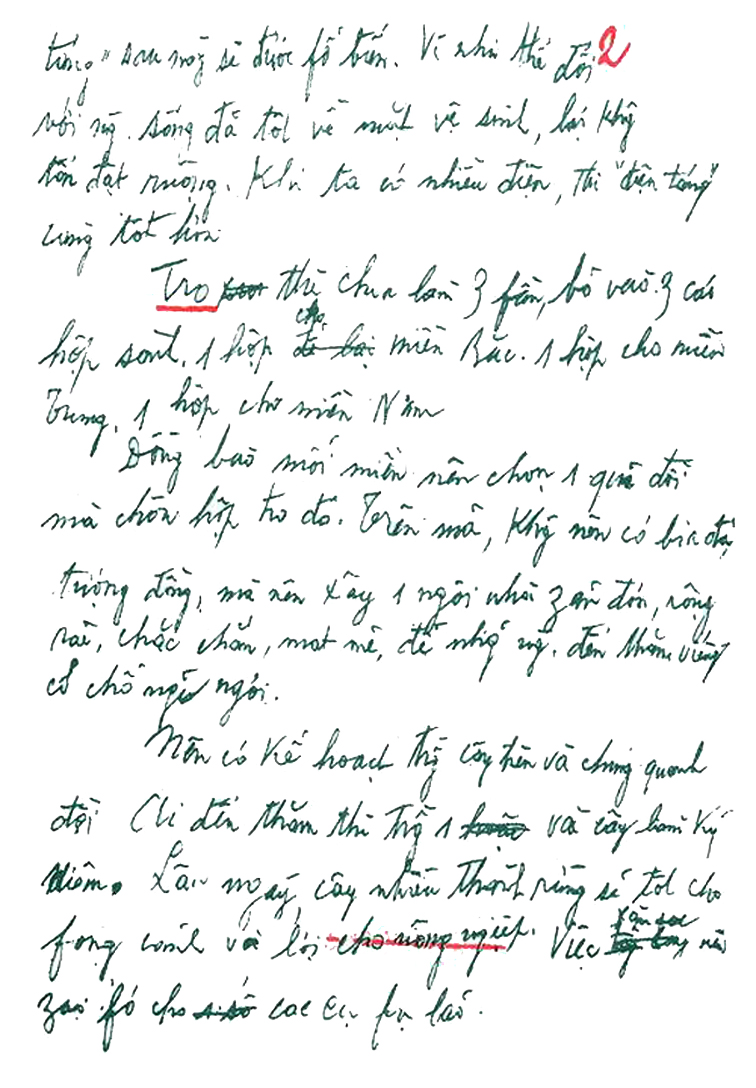 táng" sau này sẽ được fổ biến. Vì như thế đối 2
với ng. sống đã tốt về mặt vệ sinh, lại khg
tốn đất ruộng. Khi ta có nhiều điện, thì "điện táng"
càng tốt hơn
Tro thì chia làm 3 fần, bỏ vào 3 cái
hộp sành. 1 hộp cho miền Bắc. 1 hộp cho miền
Trung, 1 hộp cho miền Nam
Đồng bào mỗi miền nên chọn 1 quả đồi
mà chôn hộp tro đó. Trên mả, khg nên có bia đá
tượng đồng, mà nên xây 1 ngôi nhà zản đơn, rộng
rãi, chắc chắn, mát mẻ, để nhg ng. đến thăm viếng
có chỗ nghỉ ngơi.
Nên có kế hoạch trg cây trên và chung quanh
đồi. Ai đến thăm thì trg 1 vài cây làm kỷ
niệm. Lâu ngày, cây nhiều thành rừng sẽ tốt cho
fong cảnh và lợi cho nông ngiệp. Việc săn sóc nên
zao fó cho các cụ fụ lão.